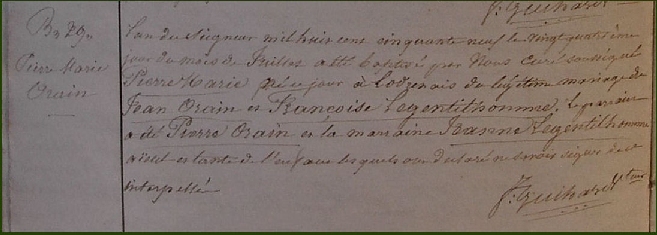 J: Guihard
B. 29.
Pierre Marie
Orain
L'an du Seigneur mil huit cent cinquante neuf le vingt quatrième
jour du mois de Juillet a été baptisé par Nous Curé soussigné
Pierre Marie né ce jour à du légitime mariage de
Jean Orain et Françoise Legentilhomme, le parrain
a été Pierre Orain et la marraine Jeanne Legentilhomme
aïeul et tante de l'enfant lesquels ont déclaré ne savoir signer de ce
interpellé
J: Guihard